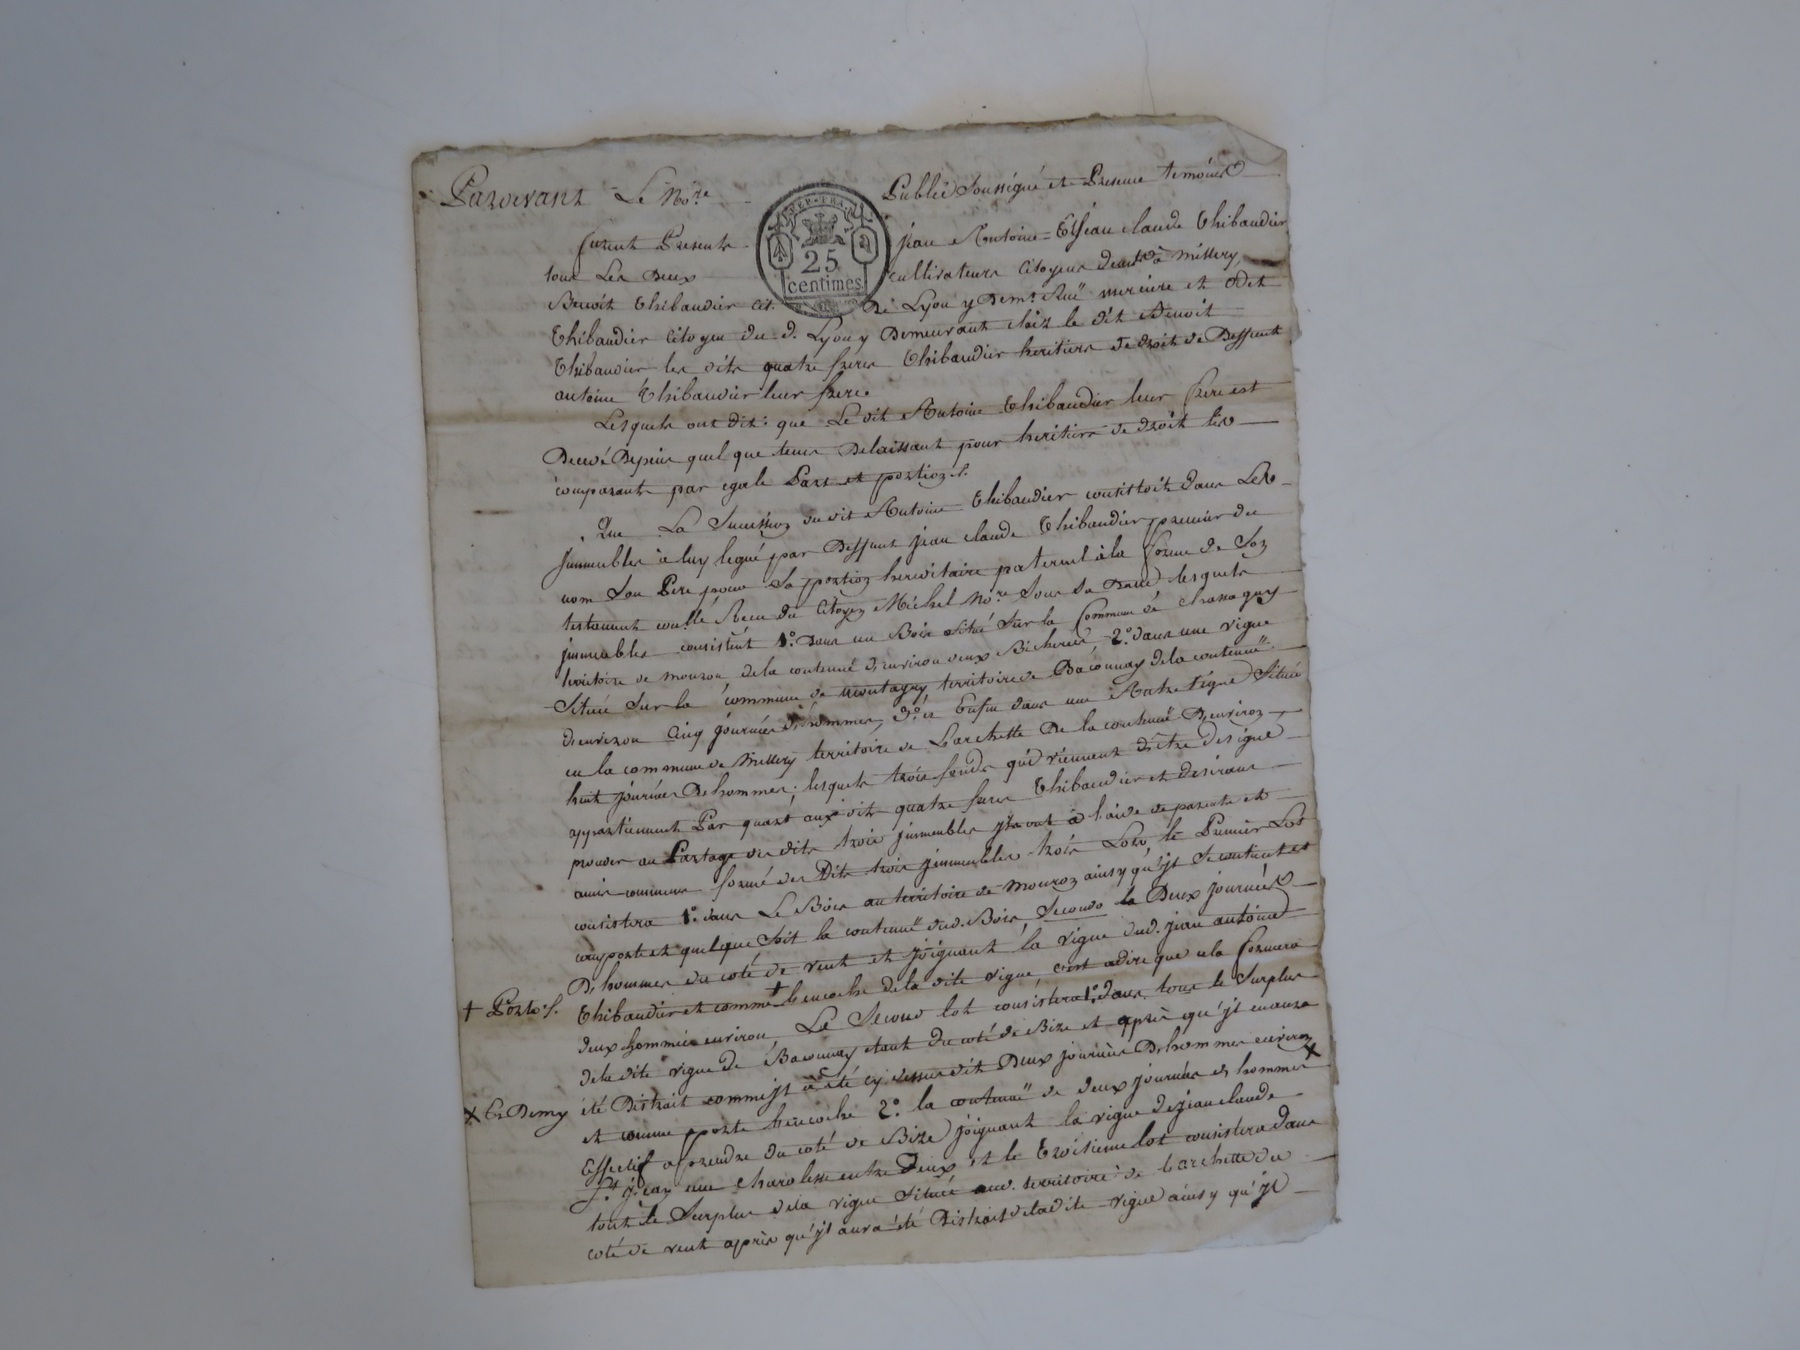 Pardevant Le No.re Public soussigné et Presence temoins
REP. FRA.
25
centimes
furent Presents jean Antoine et jean claude Thibaudier
tous Les Deux cultivateurs citoyens demt. à millery,
Benoit Thibaudier cit. de Lyon y Demt. Ruë merciere et
Thibaudier citoyen du d. Lyon y Demeurant chéz le dit Benoit
Thibaudier les dits quatre freres Thibaudier heritiers de droit de Deffunt
antoine Thibaudier leur frere.
Lesquels ont dit: que Le dit Antoine Thibaudier leur frere est
Decedé Depuis quelque tems Delaissant pour heritiers de droit les
comparants par egale Part et portions.
Que La Succession du dit Antoine Thibaudier consistoit dans Les
jmmeubles à luy legué par Deffunt jean claude Thibaudier premier du
nom Son Pere pour Sa portion hereditaire paternel à la forme de Son
testament Recu du Citoyen Michel No.re Sous Sa Datte lesquels
jmmeubles consistent 1.º Dans un Bois Situé Sur la Commune de chassagny
territoire de mouron de la contenuë d'environ deux Bicherées, 2.º dans une vigne
Située Sur la commune de montagny territoire de Baconnay de la contenuë
d'environ Cinq journées d'hommes, 3.º et Enfin dans une Autre vigne Située
en la commune de Millery territoire de Larchette De la contenuë D'environ
huit journées De hommes; lesquels trois fonds qui viennent d'être designé
appartiennent Par quart aux dits quatre freres Thibaudier et desirant
proceder au Partage des dits trois jmmeubles jls ont à l'aide de parents et
amis communs formé des Dits trois jmmeubles trois Lots, le Premier Lot
consistera 1.º dans Le Bois au territoire de Mouron ainsy qu'jl se contient et
comporte et quelque Soit la contenuë dud. Bois, Secondo la Deux journées
D'hommes du coté de vent et joignant la vigne dud. jean antoine
† Porte f. Thibaudier et comme † hencoche de la dite vigne, c'est adire que cela formera
deux hommées environ, Le Second lot consistera 1.º dans tout le Surplus
de la dite vigne de Baconnay étant du coté de Bize et après qu'jl en aura
été Distrait comm'jl a été cy dessus dit Deux journées D'hommes environ ×
× Et Demy et comme porte hencoche 2.º la contenuë de deux journées d'hommes
Effectif a prendre du coté de Bize joignant la vigne de jean claude
entre Deux et le troisieme lot consistera dans
tout le Surplus de la vigne Située aud. territoire de Larchette du
coté de vent après qu'jl aura été Distrait de la dite vigne ainsy qu'jl